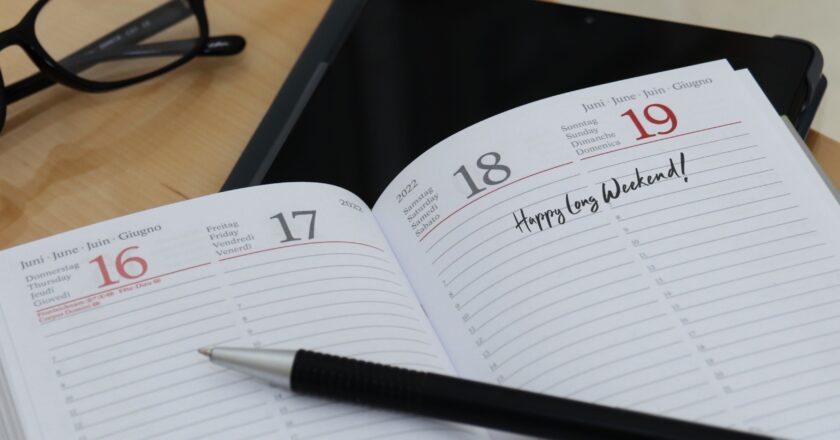 Juni · June · Juin · Giugno
Donnerstag
Thursday
Jeudi
Giovedì
16
Fronleichnam
Fête-Dieu
Corpus Domini
Freitag
Friday
Vendredi
Venerdì
17
2022
2022
Samstag
Saturday
Samedi
Sabato
18
Juni · June · Juin · Giugno
Sonntag
Sunday
Dimanche
Domenica
19
Happy Long Weekend!